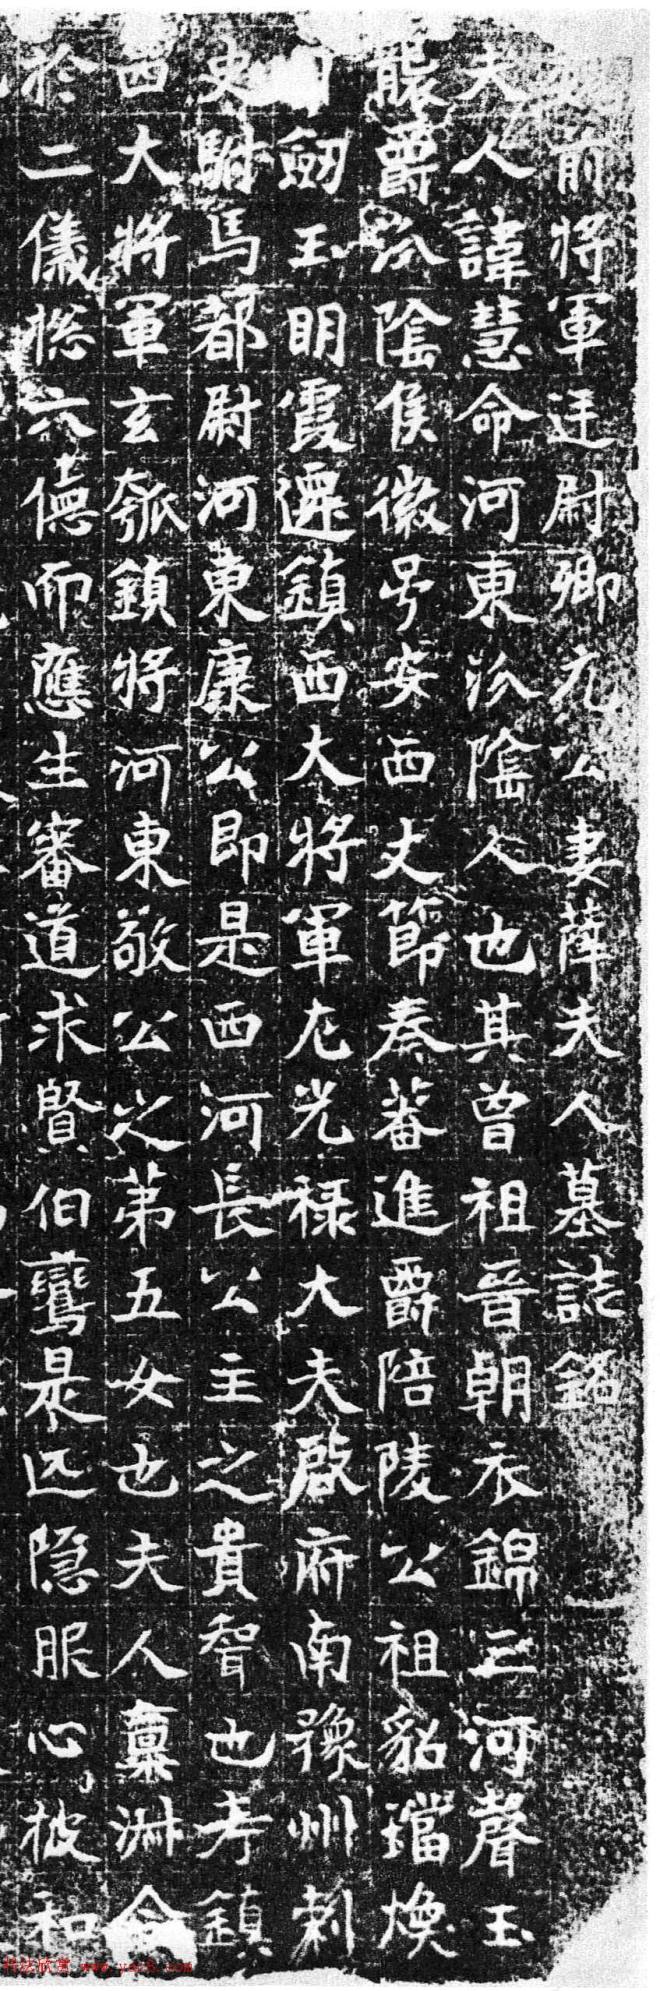 前將軍廷尉卿元公妻薛夫人墓誌銘
夫人諱慧命河東汾陰人也其曾祖晉朝衣錦三河聲玉
襲爵汾陰侯徽号安西丈節秦蕃進爵陪陵公祖貂璫煥
日劒玉明霞遷鎮西大將軍左光祿大夫啟府南豫州刺
史駙馬都尉河東康公即是西河長公主之貴聟也考鎮
西大將軍玄瓠鎮將河東敬公之第五女也夫人稟淋令
於二儀摠六德而應生審道求賢伯鸞是匹隱眼心被和
书法欣赏 www.yac8.com